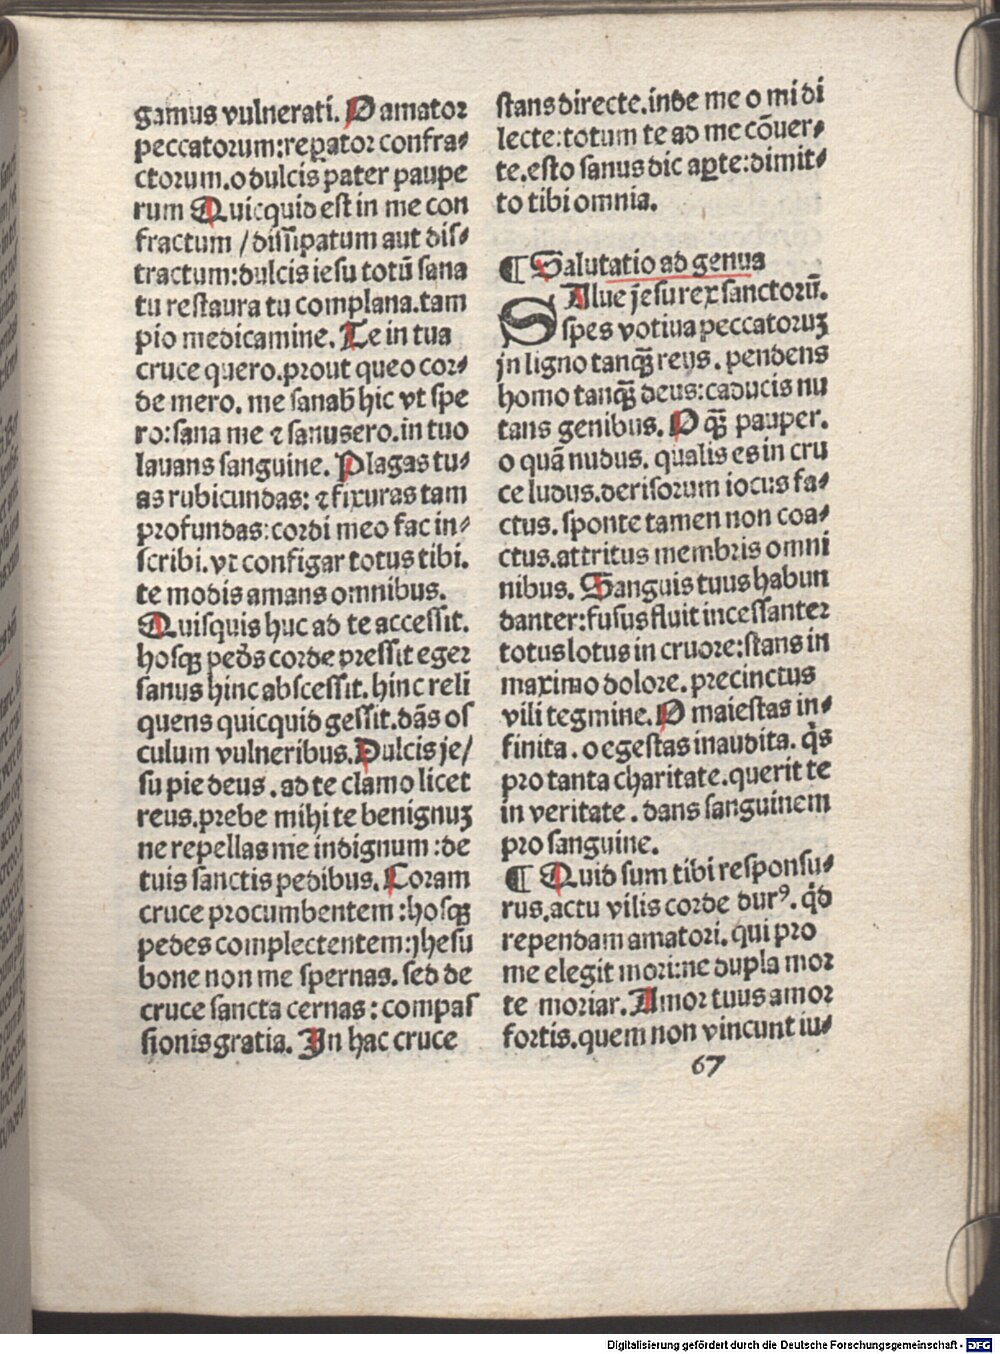 gamus vulnerati. O amator
peccatorum:reꝑator confra⸗
ctorum.o dulcis pater paupe
rum Quicquid est in me con
fractum /dissipatum aut dis⸗
tractum:dulcis iesu totū sana
tu restaura tu complana.tam
pio medicamine. Te in tua
cruce quero.prout queo cor⸗
de mero. me sanab̄ hic vt spe
ro:sana me ⁊ sanus ero.in tuo
lauans sanguine. Plagas tu⸗
as rubicundas: ⁊ fixuras tam
profundas:cordi meo fac in⸗
scribi.vt configar totus tibi.
te modis amans omnibus.
Quisquis huc ad te accessit.
hosq̨ ped̄s corde pressit eger
sanus hinc abscessit. hinc reli
quens quicquid gessit.dās os
culum vulneribus. Dulcis je/
su pie deus . ad te clamo licet
reus.prebe mihi te benignuꝫ
ne repellas me indignum :de
tuis sanctis pedibus. Coram
cruce procumbentem :hosq̨
pedes complectentem:jhesu
bone non me spernas. sed de
cruce sancta cernas : compas
sionis gratia. In hac cruce
stans directe.inde me o mi di
lecte:totum te ad me cōuer⸗
te.esto sanus dic aꝑte:dimit⸗
to tibi omnia.
¶ Salutatio ad genua
SAlue jesu rex sanctorū.
spes votiua peccatoruꝫ
jn ligno tanq̄ȝ reus . pendens
homo tanq̄ȝ deus:caducis nu
tans genibus. O q̄ȝ pauper.
o quā nudus. qualis es in cru
ce ludus.derisorum iocus fa⸗
ctus. sponte tamen non coa⸗
ctus.attritus membris omni
nibus. Sanguis tuus habun
danter:fusus fluit incessanter
totus lotus in cruore:stans in
maximo dolore. precinctus
vili tegmine. O maiestas in⸗
finita . o egestas inaudita. q̄s
pro tanta charitate.querit te
in veritate . dans sanguinem
pro sanguine.
¶ Quid sum tibi responsu⸗
rus.actu vilis corde durꝰ. q̄d
rependam amatori. qui pro
me elegit mori:ne dupla mor
te moriar. Amor tuus amor
fortis.quem non vincunt iu⸗
67
Digitalisierung gefördert durch die Deutsche Forschungsgemeinschaft - DFG